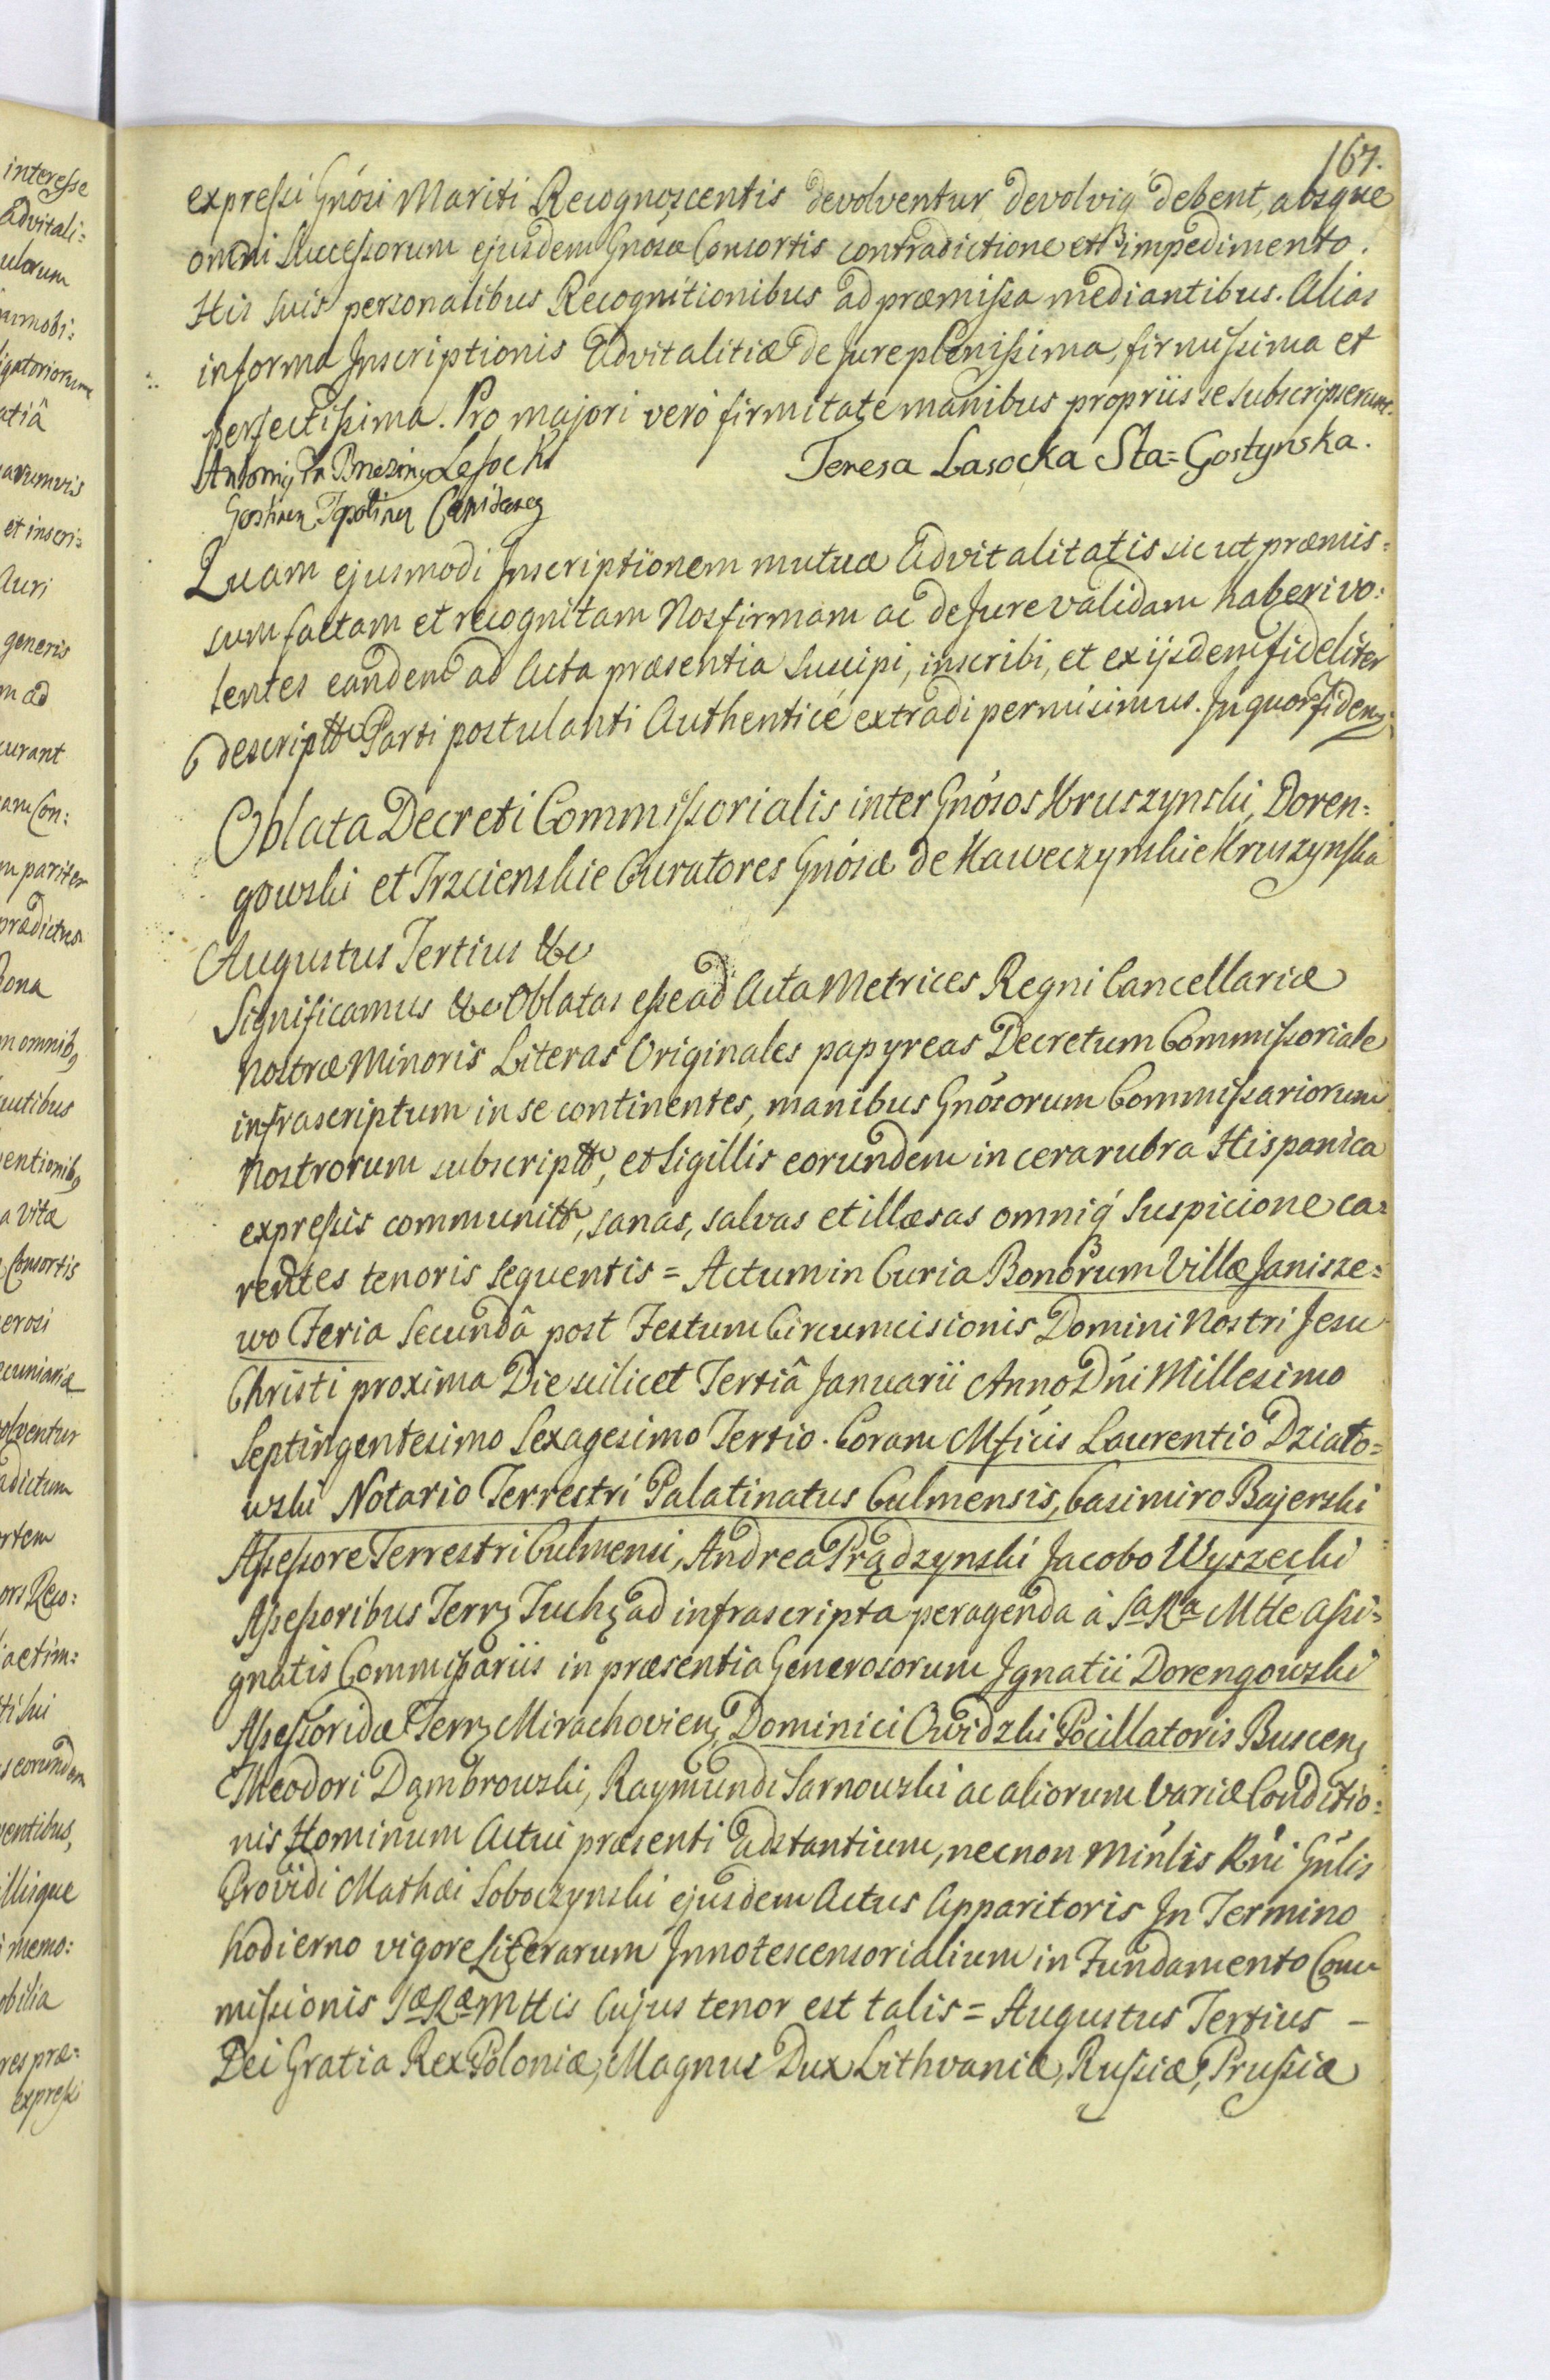 167.
expressi Gnósi Mariti Recognoscentis devolventur devolviq́ debent, absque
omni Successorum ejusdem Gnósæ Consortis contradictione et impedimento.
His suis personalibus Recognitionibus ad præmissa mediantibus. Alias
in forma Inscriptionis Advitalitiæ de Jure plenissima, firmissima et
perfectissima. Pro majori veró firmitate manibus propriis se subscripserunt.
Antoni Lasocki
Teresa Lasocka Sta= Gostynska.
Quam ejusmodi Inscriptionem mutuæ Advitalitatis sic ut præmis=
sum factam et recognitam Nos firmam ac de Jure validam haberi vo=
lentes eandem ad Acta præsentia suscipi, inscribi, et ex ijsdem fideliter
descriptt Parti postulanti Authenticé extradi permisimus. In quor fidem
Oblata Decreti Commissorialis inter Gnósos Kruszynski, Doren=
gowski et Trzcienskie Curatores Gnósæ de Kaweczynskie Kruszynska
Augustus Tertius &c
Significamus &c Oblatas esse ad Acta Metrices Regni Cancellariæ
Nostræ Minoris Literas Originales papyreas Decretum Commissoriale
infrascriptum in se continentes, manibus Gnósorum Commissariorum
Nostrorum subscriptt, et Sigillis eorundem in cera rubra Hispanica
expressis communitt, sanas, salvas et illæsas omniq́ suspicione ca=
rentes tenoris sequentis = Actum in Curia Bonorum Villæ Janisze=
wo Feria Secundâ post Festum Circumcisionis Domini Nostri Jesu
Christi proxima Die scilicet Tertiâ Januarii Anno Dńi Millesimo
Septingentesimo Sexagesimo Tertio. Coram Mficis Laurentio Działo=
wski Notario Terrestri Palatinatus Culmensis, Casimiro Bajerski
Assessore Terrestri Culmensi, Andrea Prądzynski Jacobo Wyszecki
Assessoribus Terr Tuch ad infrascripta peragenda à Sa Ra Mtte assi=
gnatis Commissariis in præsentia Generosorum Ignatii Dorengowski
Assessoridæ Terr Mirachovien, Dominici Owidzki Pocillatoris Buscen
Theodori Dąmbrowski, Raymundi Sarnowski ac aliorum variæ Conditio=
nis Hominum Actui præsenti adstantium, necnon Mińlis Rńi Gńlis
Providi Mathæi Soboczynski ejusdem Actus Apparitoris In Termino
hodierno vigore Literarum Innotescensorialium in Fundamento Com
missionis Sæ Ræ Mttis Cujus tenor est talis = Augustus Tertius –
Dei Gratia Rex Poloniæ, Magnus Dux Lithvaniæ, Russiæ, Prussiæ